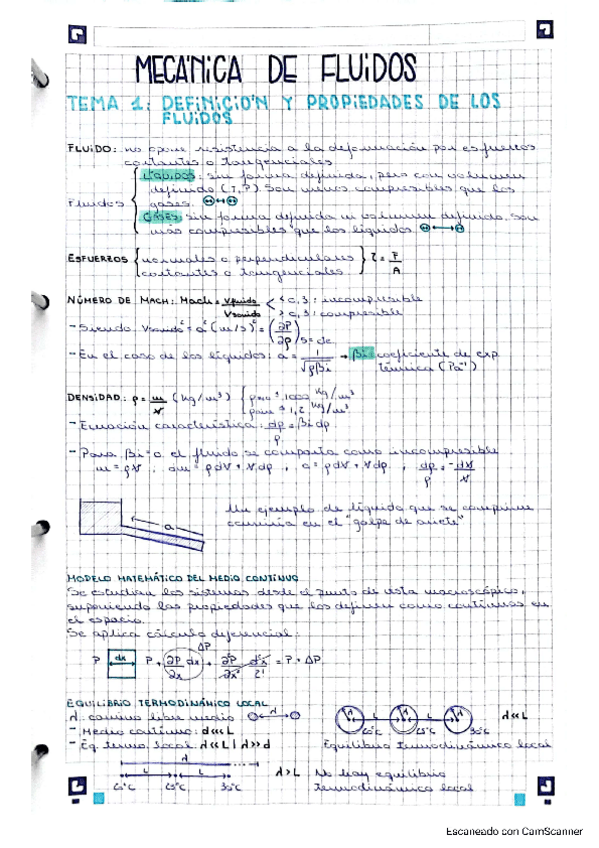 MECÁNICA DE FLUIDOS
TEMA 1: DEFINICIÓN Y PROPIEDADES DE LOS
FLUIDOS
FLUIDO: no opone resistencia a la deformación por esfuerzos
cortantes o tangenciales
Fluidos
Líquidos: sin forma definida, pero con volumen
definido (T, P) Son menos compresibles que los
gases.
Gases: sin forma definida ni volumen definido. Son
más compresibles que los líquidos
ESFUERZOS { normales o perpendiculares
cortantes o tangenciales } τ = F/A
NÚMERO DE MACH: Mach = Vfluido/Vsonido < 0,3: incompresible
> 0,3: compresible
- Siendo Vsonido² = a² (m/s)² = (∂P/∂ρ) s=cte
- En el caso de los líquidos: a = 1/√ρβi → βi coeficiente de
térmica (Pa⁻¹)
DENSIDAD: ρ = m/V (kg/m³) { 1000 kg/m³
1,2 kg/m³
- Ecuación característica: dρ/ρ = βi dp
- Para βi=0 el fluido se comporta como incompresible
m = ρV, dm = ρdV + Vdρ, 0 = ρdV + Vdρ, dρ/ρ = -dV/V
a
Un ejemplo de líquido que se comprime
ocurriría en el "golpe de ariete"
MODELO MATEMÁTICO DEL MEDIO CONTINUO
Se estudian los sistemas desde el punto de vista macroscópico,
suponiendo las propiedades que los definen como continuas en
el espacio.
Se aplica cálculo diferencial:
ΔP
P dx P + ∂P/∂x dx + ∂²P/∂x² d²x/2! = P + ΔP
EQUILIBRIO TERMODINÁMICO LOCAL
λ: camino libre medio λ
- Medio continuo: d<<L
- Eq. termo local: λ<<L | λ>>d
L L λ<<L
20°C 25°C 30°C
Equilibrio termodinámico local
λ
L L
20°C 25°C 30°C
λ>L No hay equilibrio
termodinámico local
Escaneado con CamScanner